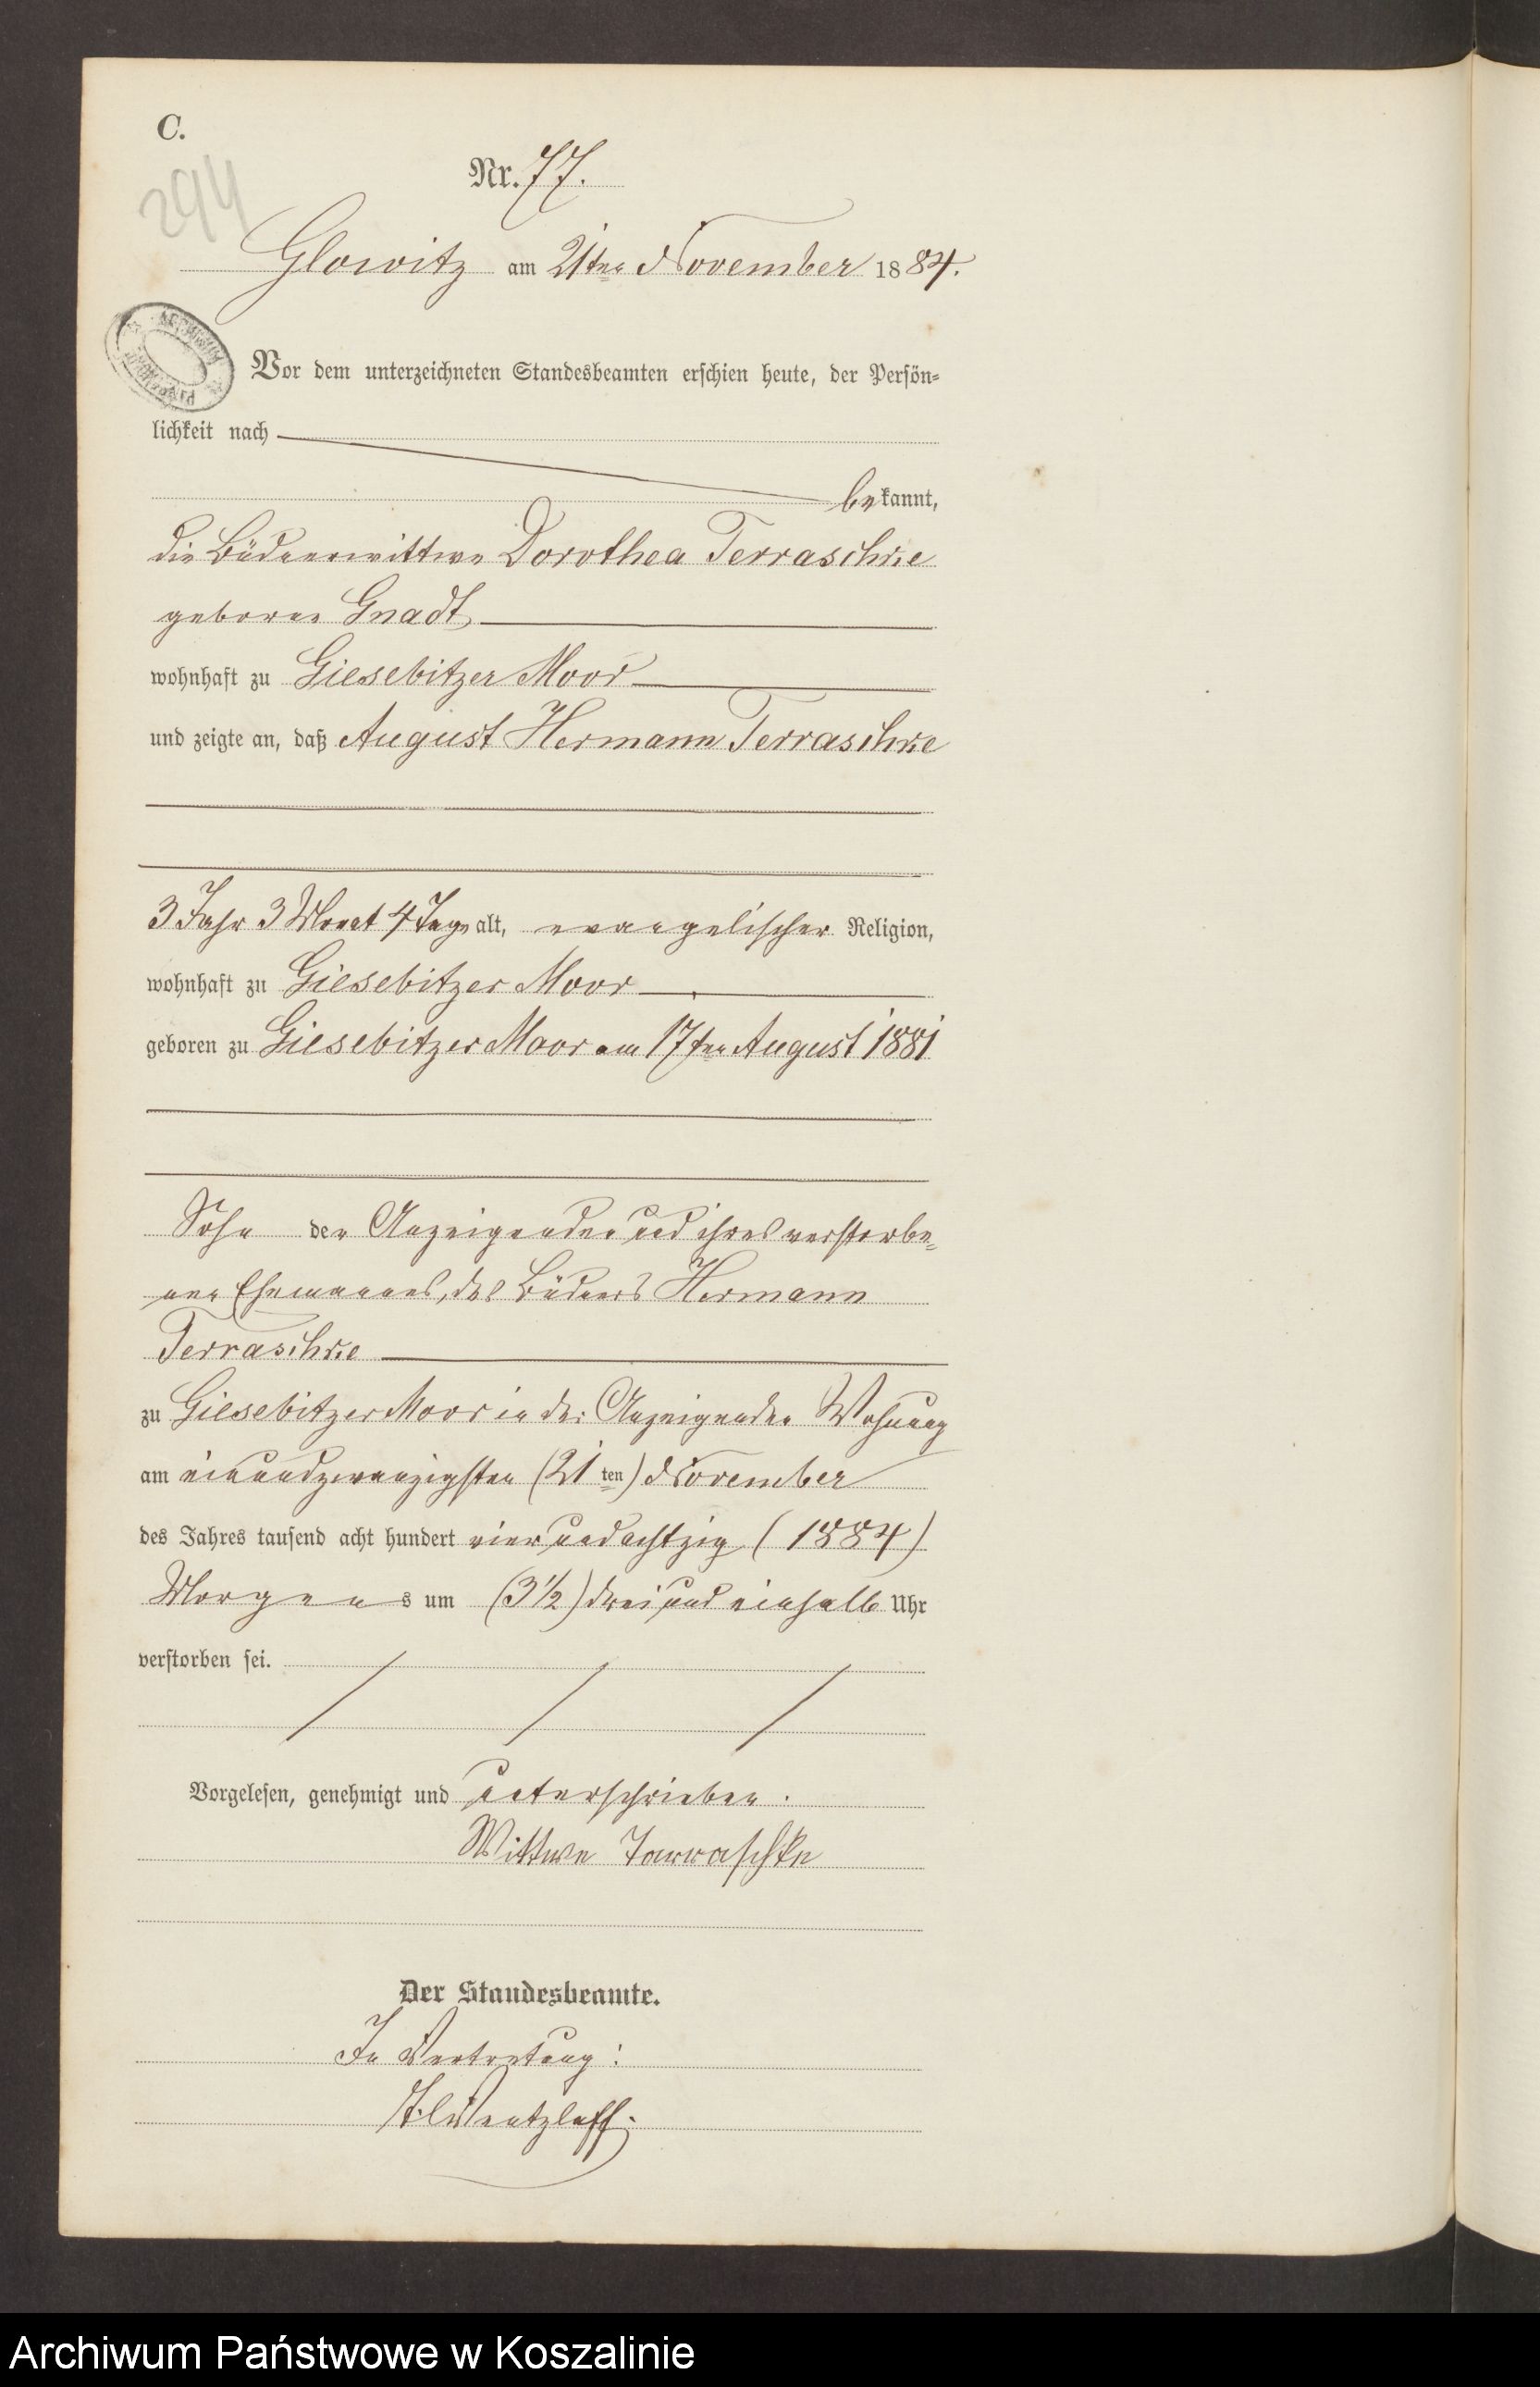 C.
294
Nr. 77.
Glowitz am 21ten November 1884.
Vor dem unterzeichneten Standesbeamten erschien heute, der Persön-
lichkeit nach
bekannt,
die Büdnerwittwe Dorothea Terraschke
geborne Gnadt
wohnhaft zu Giesebitzer Moor
und zeigte an, daß August Hermann Terraschke
3 Jahr 3 Monat 4 Tage alt, evangelischer Religion,
wohnhaft zu Giesebitzer Moor
geboren zu Giesebitzer Moor am 17ten August 1881
Sohn der Anzeigenden und ihres verstorbe-
nen Ehemannes, des Büdners Hermann
Terraschke
zu Giesebitzer Moor in der Anzeigenden Wohnung
am einundzwanzigsten (21ten) November
des Jahres tausend acht hundert vierundachtzig (1884)
Morgens um (3½) drei und einhalb Uhr
verstorben sei.
Vorgelesen, genehmigt und unterschrieben.
Wittwe Tarraschke
Der Standesbeamte.
In Vertretung:
Wentzlaff.
Archiwum Państwowe w Koszalinie